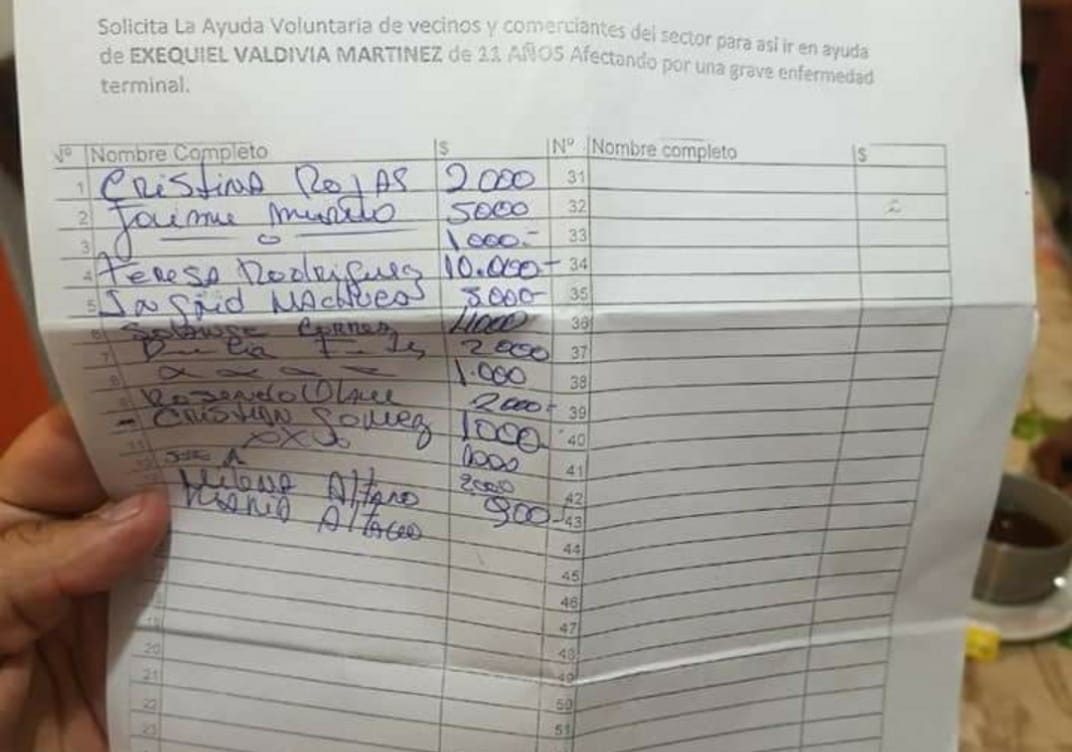 Solicita La Ayuda Voluntaria de vecinos y comerciantes del sector para asi ir en ayuda
de EXEQUIEL VALDIVIA MARTINEZ de 11 AÑOS Afectando por una grave enfermedad
terminal.
Nº Nombre Completo $ Nº Nombre completo $
1 Cristina Rojas 2000 31
2 Jaime 5000 32
3 1000.- 33
4 Teresa Rodriguez 10.000- 34
5 3000- 35
6 4000 36
7 2000 37
8 1.000 38
Rosendo 2000- 39
Cristian Gomez 1000 40
11 1000 41
12 2000 42
Milena Alfaro 900 43
Maria
44
45
46
47
48
49
20 50
21 51
22
23